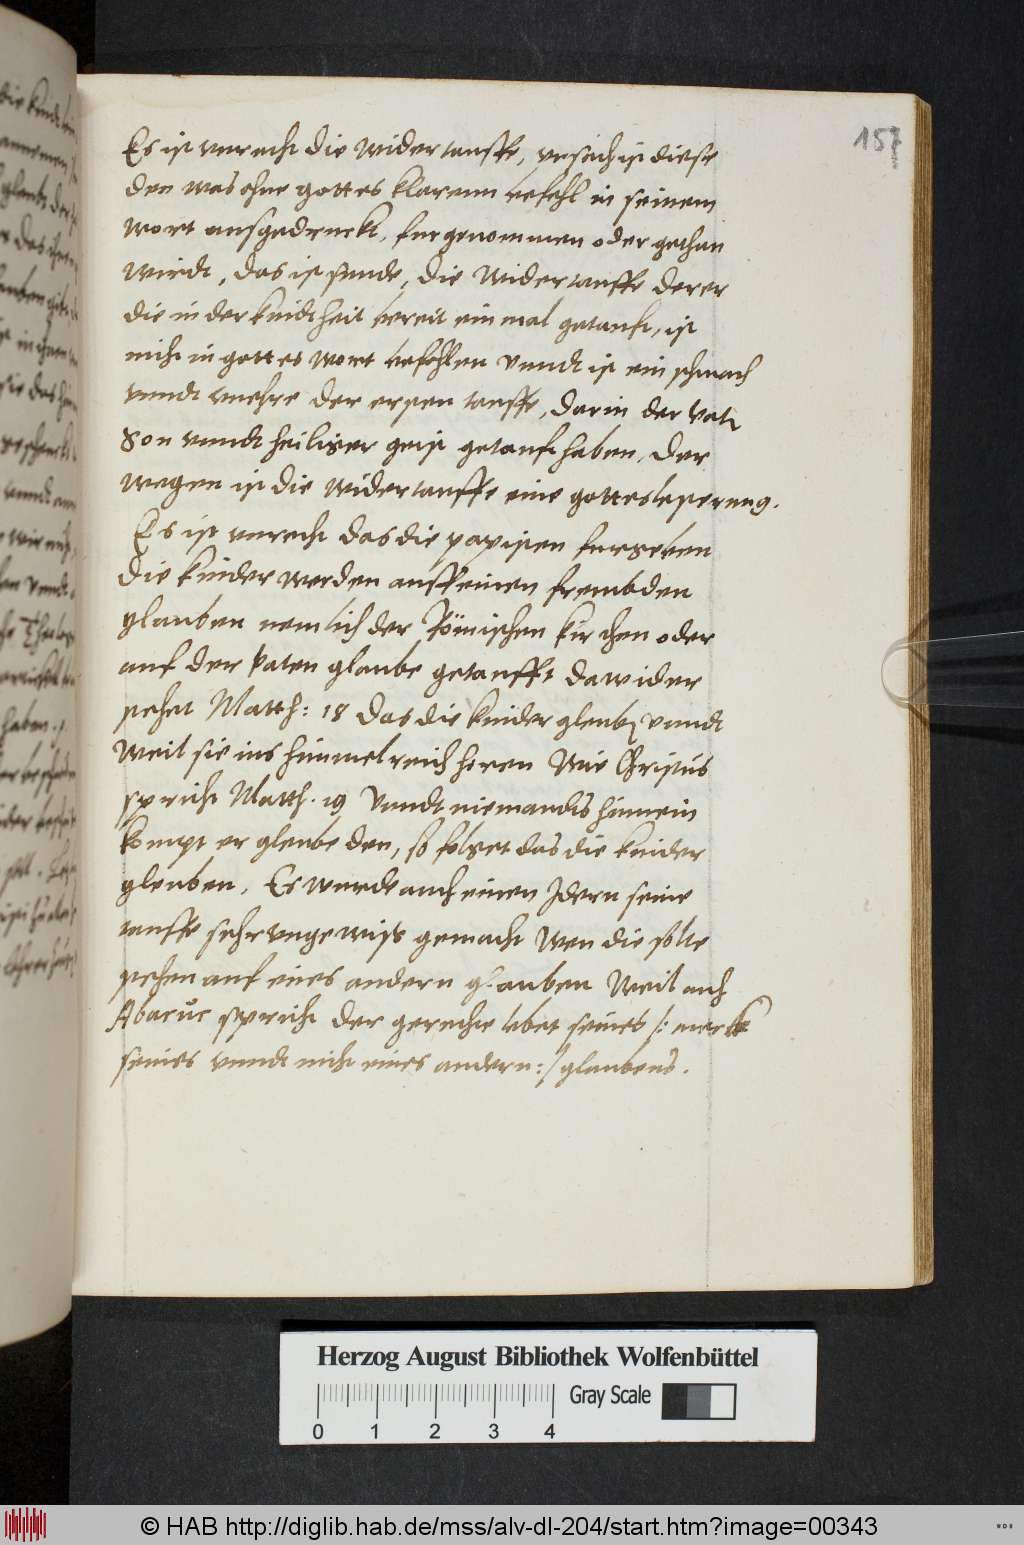 157
Es ist vnrecht die Widertauffe, vrsach ist diese
den was ohne gottes klarenn befehl in seinem
wort ausgedruckt, furgenommen oder gethan
wirdt, das ist sunde, die Widertauffe derer
die in der kindtheit bereit ein mal getauft, ist
nicht in gottes wort befohlen vnndt ist ein schmach
vnndt vnehre der ersten tauffe, darin der Vater
Son vnndt heiliger geist getauft haben, der
wegen ist die widertauffe eine gotteslesterung.
Es ist vnrecht das die papisten furgeben
die kinder werden auff einen frembden
glauben nemlich der Römischen kirchen oder
auf der paten glaube getaufft dawider
stehet Matth: 18 das die kinder glenben vnndt
weil sie ins himmelreich horen Wie Christus
spricht Matth. 19 Vnndt niemandts hinnein
kompt er glenbe den, so folget das die kinder
glenben. Es wurde auch einen Jdern seine
tauffe sehr vngewiss gemacht Wen die solte
stehen auf eines andern glauben Weil auch
Abacuc spricht der gerechte lebet seines /: merck
seines vnndt nicht eines andern :/ glaubens.
Herzog August Bibliothek Wolfenbüttel
Gray Scale
0 1 2 3 4
© HAB http://diglib.hab.de/mss/alv-dl-204/start.htm?image=00343